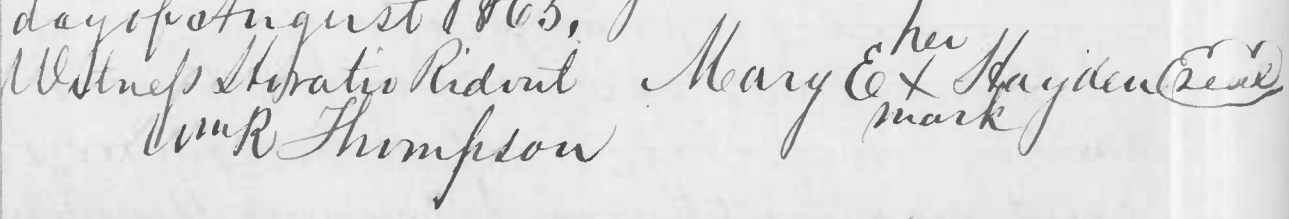 day of August 1865.
Witness Horatio Ridout Mary E her x mark Hayden (Seal)
Wm R Thompson